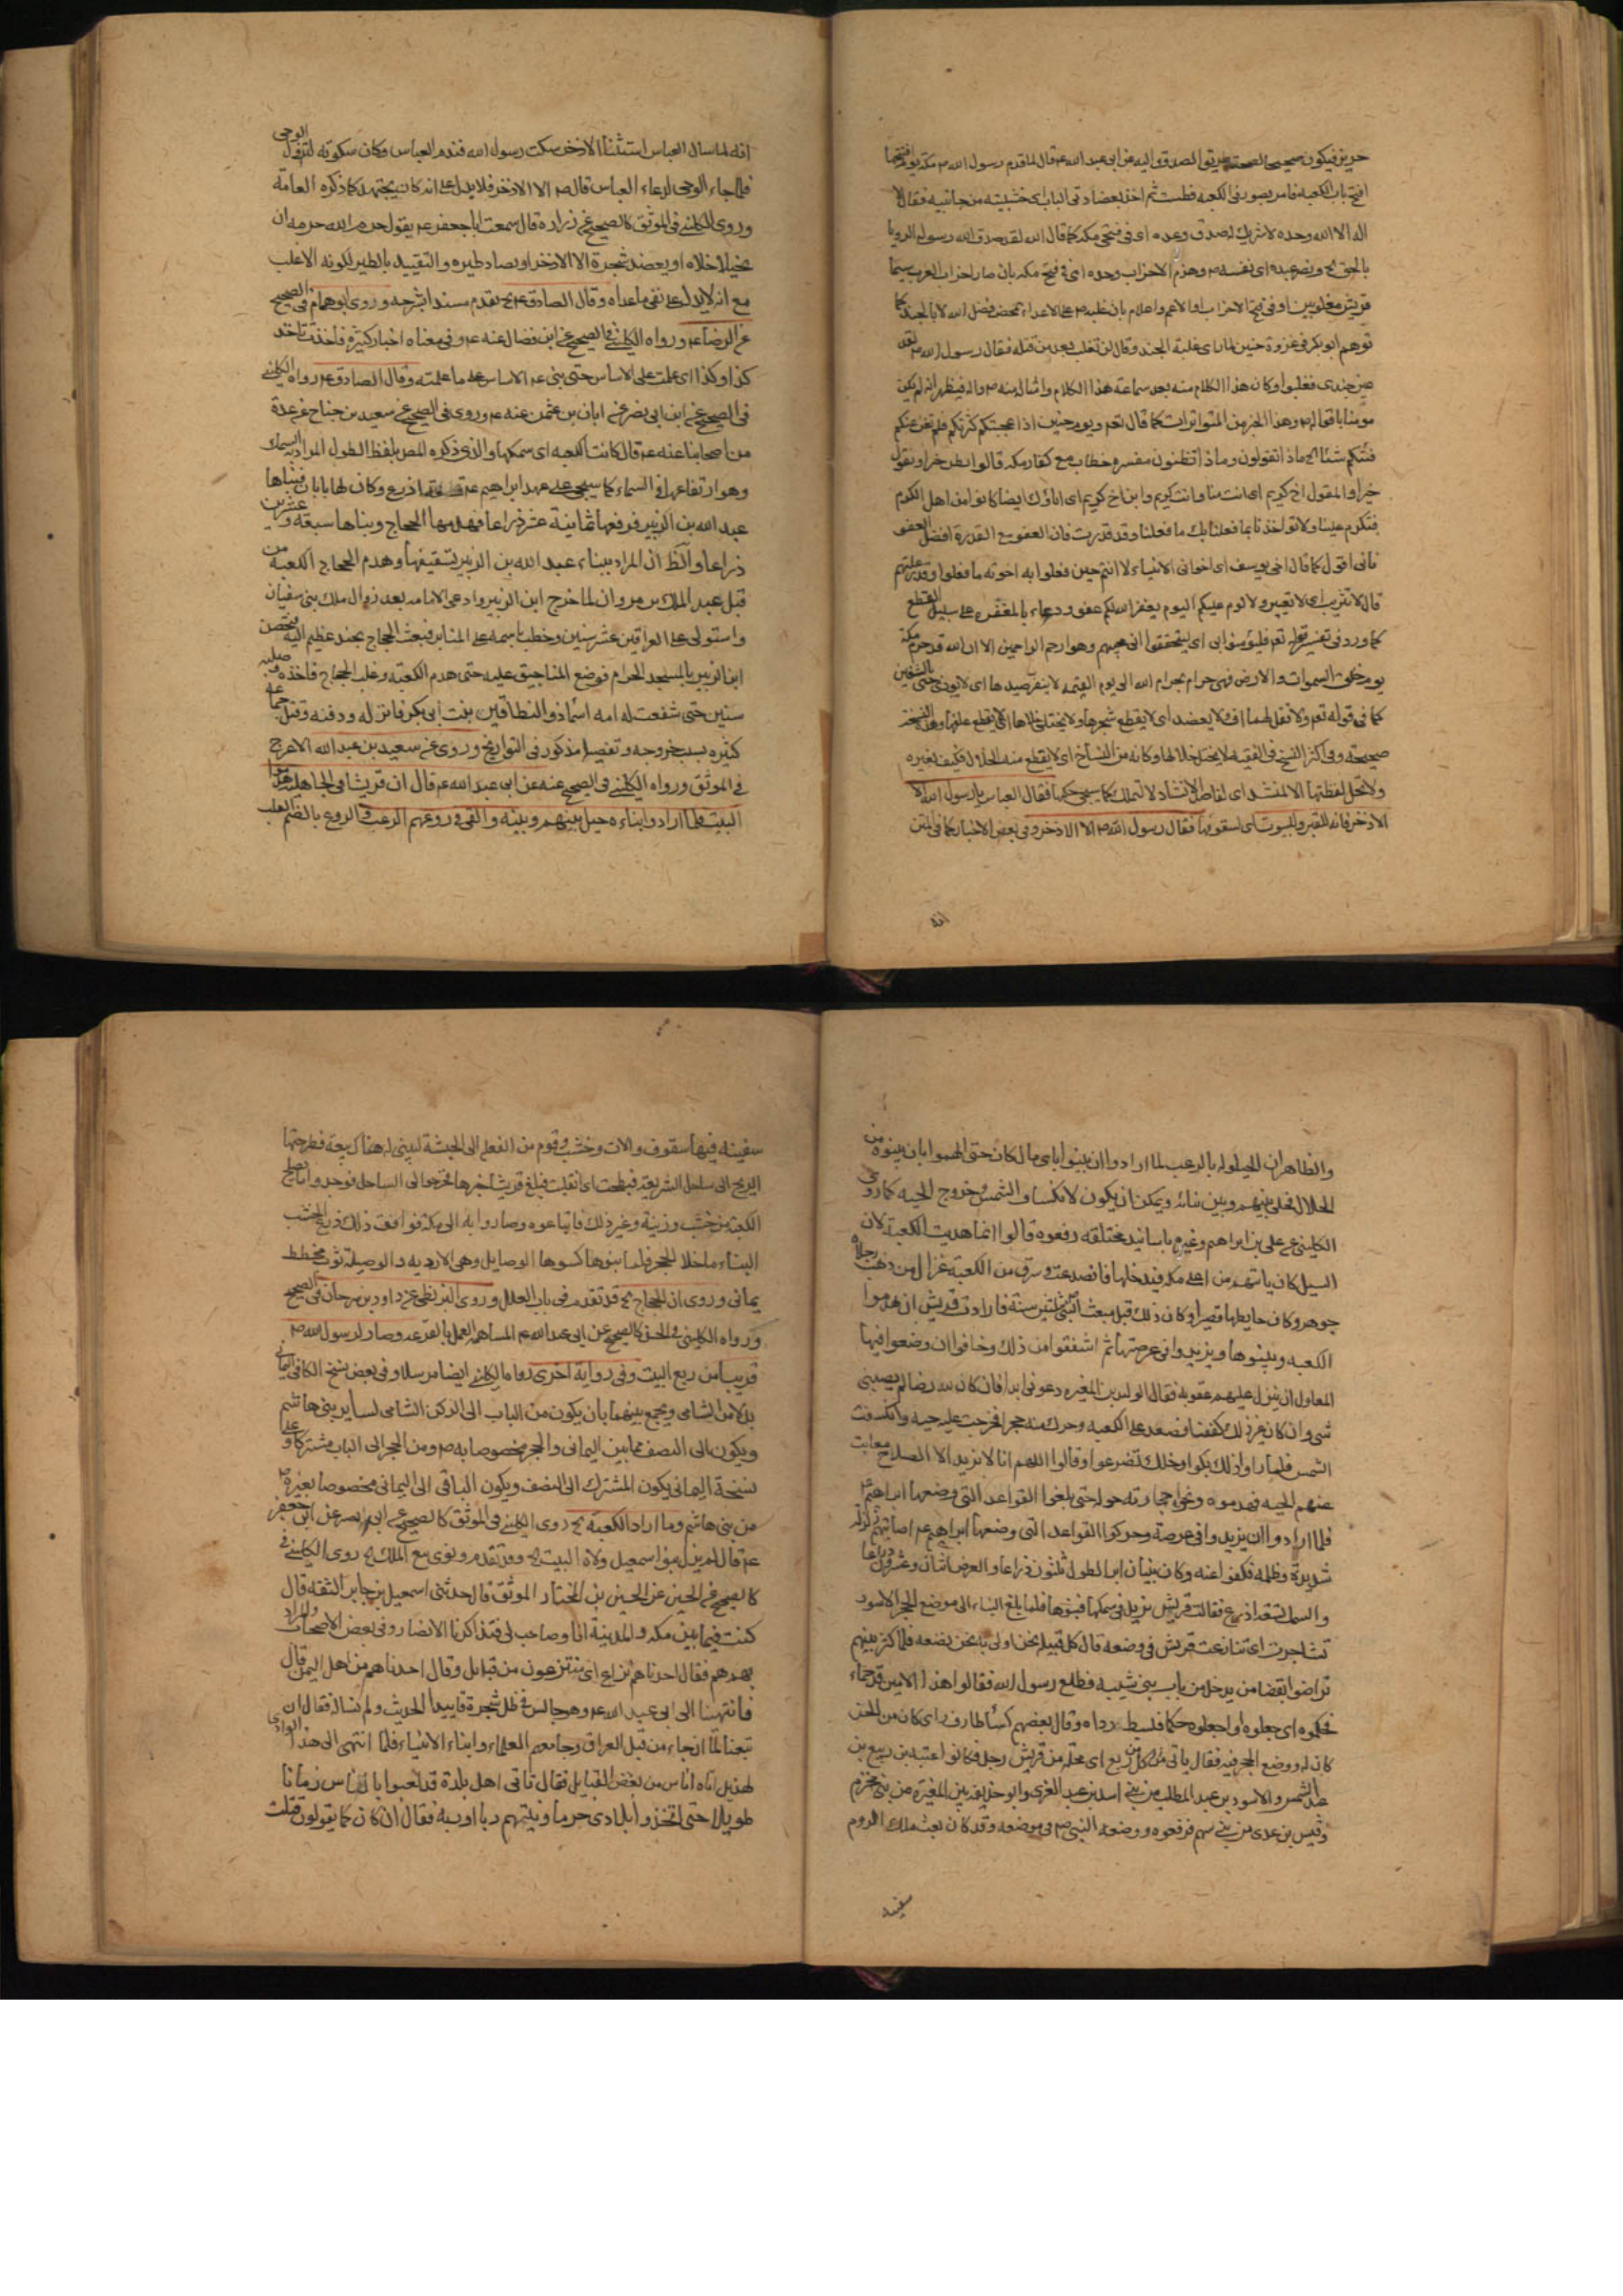 حريز فيكون صحيحا لصحة طريق الصدوق اليه عن ابى عبد الله ع قال لما قدم رسول الله ص مكة يوم افتتحها
فتح باب الكعبة فامر بصور فى الكعبة فطمست ثم اخذ بعضادتى الباب اى خشبتيه من جانبيه فقال لا
اله الا الله وحده لا شريك له صدق وعده اى فى فتحى مكه كما قال الله لقد صدق الله رسوله الرويا
بالحق الخ ونصر عبده اى نفسه ص وهزم الاحزاب وحده اى فى فتح مكه بان صار احزاب العرب سيما
قريش مغلوبين او فى فتح الاحزاب او الاعم واعلام بان غلبه ص على الاعداء بمحض فضل الله لا بالجند كما
توهم ابو بكر فى غزوة حنين لما راى غلبة الجند وقال لن نغلب بعد من قلة فقال رسول الله ص
من جندى فغلبوا وكان هذا الكلام منه بعد سماعه هذا الكلام وامثاله منه ص فيظهر انه لم يكن
مومنا باقواله ص وهذا الخبر من المتواترات كما قال تعالى ويوم حنين اذ اعجبتكم كثرتكم فلم تغن عنكم
شيئا الخ ماذا تقولون وماذا تظنون مفسره خطاب مع كفار مكه قالوا نظن خيرا ونقول
خيرا والمقول اخ كريم اى انت منا وانت كريم وابن اخ كريم اى اباؤك ايضا كانوا من اهل الكرم
فتكرم علينا ولا تؤاخذنا بما فعلنا بك ما فعلنا وقد قدرت فان العفو مع القدرة افضل العفو
فانى اقول كما قال اخى يوسف اى اخوانى الانبياء لا انتم حين فعلوا به اخوته ما فعلوا وقدر عليهم
قال لا تثريب اى لا تعيير ولا لوم عليكم اليوم يغفر الله لكم عفو ودعاء بالمغفره على سبيل القطع
كما ورد فى تفسير قوله تع فليؤمنوا بى اى ليتحققوا انى مجيبهم وهو ارحم الراحمين الا ان الله قد حرم مكة
يوم خلق السموات والارض فهى حرام بحرام الله الى يوم القيمة لا ينفر صيدها اى لا يوذى حتى بالتنفير
كما فى قوله تعالى ولا تقل لهما اف ولا يعضد اى لا يقطع شجرها ولا يختلى خلاها اى لا يقطع علفها وهذه النسخة
صحيحة وفى اكثر النسخ فى الفقيه لا يحل خلالها وكانه من النساخ اى لا يقطع منه الخلال فكيف بغيره
ولا تحل لقطتها الا لمنشد اى لقاصد الانشاد لا التملك كما سيجى حكمها فقال العباس يا رسول الله الا
الاذخر فانه للقبر ولبيوت اى لسقوفها فقال رسول الله ص الا الاذخر وفى بعض الاخبار كما فى المتن
انه
انه لما سال العباس استثناء الاذخر سكت رسول الله فندم العباس وكان سكوته لنزول الوحى
فلما جاء الوحى لدعاء العباس قال ص الا الاذخر فلا يدل على انه كان يجتهد كما ذكره العامة
وروى الكلينى فى الموثق كالصحيح عن زرارة قال سمعت ابا جعفر ع يقول حرم الله حرمه ان
يختلى خلاه او يعضد شجرة الا الاذخر او يصاد طيره والتقييد بالطير لكونه الاغلب
مع انه لا يدل على نفى ما عداه وقال الصادق ع الخ تقدم مسندا شرحه وروى ابو همام فى الصحيح
عن الرضا ع ورواه الكلينى فى الصحيح عن ابن فضال عنه ع وفى معناه اخبار كثيرة فاخذت تاخذ
كذا وكذا اى علت على الاساس حتى بنى ع الاساس على ما علمته وقال الصادق ع رواه الكلينى
فى الصحيح عن ابن ابى نصر عن ابان بن عثمن عنه ع وروى فى الصحيح عن سعيد بن جناح عن عدة
من اصحابنا عنه ع قال كانت الكعبه اى سمكها والذى ذكره المص بلفظ الطول المراد به السماء
وهو ارتفاعها فى السماء كما سيجى على عهد ابراهيم ع تسعة اذرع وكان لها بابان فبناها
عبد الله بن الزبير فرفعها ثمانية عشر ذراعا فهدمها الحجاج وبناها سبعة وعشرين
ذراعا والظ ان المراد ببناء عبد الله بن الزبير تسقيفها وهدم الحجاج الكعبة من
قبل عبد الملك بن مروان لما خرج ابن الزبير وادعى الامامه بعد زوال ملك بنى سفيان
واستولى على العراقين عشر سنين وخطب باسمه على المنابر فبعث الحجاج بجند عظيم اليه فتحصن
ابن الزبير بالمسجد الحرام فوضع المناجيق عليه حتى هدم الكعبة وغلب الحجاج فاخذه وصلبه
سنين حتى شفعت له امه اسماء ذو النطاقين بنت ابى بكر فانزله ودفنه وقتل جماعة
كثيره بسبب خروجه وتفصيله مذكور فى التواريخ وروى عن سعيد بن عبد الله الاعرج
فى الموثق ورواه الكلينى فى الصحيح عنه عن ابى عبد الله ع قال ان قريشا فى الجاهلية هدموا
البيت فلما ارادوا بناءه حيل بينهم وبينه والقى فى روعهم الرعب والروع بالضم القلب
والظاهر ان الحيلوله بالرعب لما ارادوا ان يبنوا باى مال كان حتى الهموا بان يبنوه من
الحلال فخلى بينهم وبين بنائه ويمكن ان يكون لانكساف الشمس وخروج الحيه كما روى
الكلينى عن على بن ابراهيم وغيره باسانيد مختلفه رفعوه قالوا انما هدمت الكعبة لان
السيل كان ياتيهم من اعلى مكه فيدخلها فانصدعت وسرق من الكعبة غزال من ذهب رجلاه
جوهر وكان حايطها قصيرا وكان ذلك قبل مبعث النبى بثلثين سنة فارادت قريش ان يهدموا
الكعبه ويبنوها ويزيدوا فى عرصتها ثم اشفقوا من ذلك وخافوا ان وضعوا فيها
المعاول ان ينزل عليهم عقوبه فقال الوليد بن المغيره دعونى ابدا فان كان لله رضا لم يصيبنى
شى وان كان غير ذلك كففنا فصعد على الكعبه وحرك منه حجرا فخرجت عليه حيه وانكسفت
الشمس فلما راوا ذلك بكوا وتضرعوا وقالوا اللهم انا لا نريد الا الصلاح فغابت
عنهم الحيه فهدموه ونحوا حجارته حوله حتى بلغوا القواعد التى وضعها ابراهيم ع
فلما ارادوا ان يزيدوا فى عرصة وحركوا القواعد التى وضعها ابراهيم ع اصابتهم زلزلة
شديدة وظلمه فكفوا عنه وكان بنيان ابراهيم الطول ثلثون ذراعا والعرض اثنان وعشرون ذراعا
والسمك تسعة اذرع فقالت قريش نزيد فى سمكها فبنوها فلما بلغ البناء الى موضع الحجر الاسود
تشاجرت اى تنازعت قريش فى وضعه قال كل قبيله نحن اولى به نحن نضعه فلما كثر بينهم
تراضوا بقضاء من يدخل من باب بنى شيبه فطلع رسول الله فقالوا هذا الامين قد جاء
فحكموه اى جعلوه او اجعلوه حكما فبسط رداه وقال بعضهم كساء طارونى اى كان من الخز
كان له ووضع الحجر فيه فقال ياتى من كل ربع اى محله من قريش رجل فكانوا عتبه بن ربيع بن
عبد الشمس والاسود بن عبد المطلب من بنى اسد بن عبد العزى وابو حذيفه بن المغيره من بنى مخزوم
وقيس بن عدى من بنى سهم فرفعوه ووضعه النبى ص فى موضعه وقد كان بعث ملك الروم
سفينه
سفينه فيها سقوف والات وخشب وقوم من الفعله الى الحبشة ليبنى له هناك بيعة فطرحتها
الريح الى ساحل الشريعه فبطحت اى انقلبت فبلغ قريشا خبرها فخرجوا الى الساحل فوجدوا ما يصلح
الكعبة من خشب وزينة وغير ذلك فابتاعوه وصاروا به الى مكة فوافق ذلك ذرع الخشب
البناء ما خلا الحجر فلما بنوها كسوها الوصايل وهى الارديه والوصيلة ثوب مخطط
يمانى وروى ان الحجاج الخ قد تقدم فى باب العلل وروى البزنطى عن داود بن سرحان فى الصحيح
ورواه الكلينى فى الحسن كالصحيح عن ابى عبد الله ع المساهمه العمل بالقرعه وصار لرسول الله ص
قريبا من ربع البيت وفى رواية اخرى رواها الكلينى ايضا مرسلا وفى بعض نسخ الكافى اليمانى
بدلا من الشامى ويجمع بينهما بان يكون من الباب الى الركن الشامى لساير بنى هاشم
ويكون الى النصف مما بين اليمانى والحجر مخصوصا به ص ومن الحجر الى الباب مشتركا وعلى
نسخة اليمانى يكون المشترك الى النصف ويكون الباقى الى اليمانى مخصوصا بغيره ص
من بنى هاشم وما اراد الكعبة الخ روى الكلينى فى الموثق كالصحيح عن ابى بصير عن ابى جعفر
ع قال لم يزل بنو اسمعيل ولاة البيت الخ وقد تقدم ونوى تبع الملك الخ روى الكلينى فى
كالصحيح عن الحسن عن الحسين بن المختار الموثق قال حدثنى اسمعيل بن جابر الثقه قال
كنت فيما بين مكه والمدينة انا وصاحب لى فتذاكرنا الانصار وفى بعض الاصحاب والمراد
بهم هم فقال احدنا هم نزاع اى منتزعون من قبايل وقال احدنا هم من اهل اليمن قال
فانتهينا الى ابى عبد الله ع وهو جالس فى ظل شجرة فابتدا الحديث ولم نساله فقال ان
تبعا لما ان جاء من قبل العراق وجاء معه العلماء وابناء الانبياء فلما انتهى الى هذا الوادى
لهذيل اتاه اناس من بعض القبايل فقال تاتى اهل بلدة قد لعبوا بالناس زمانا
طويلا حتى اتخذوا بلادى حرما وبنيتهم ربا او ربة فقال ان كان كما يقولون قتلت